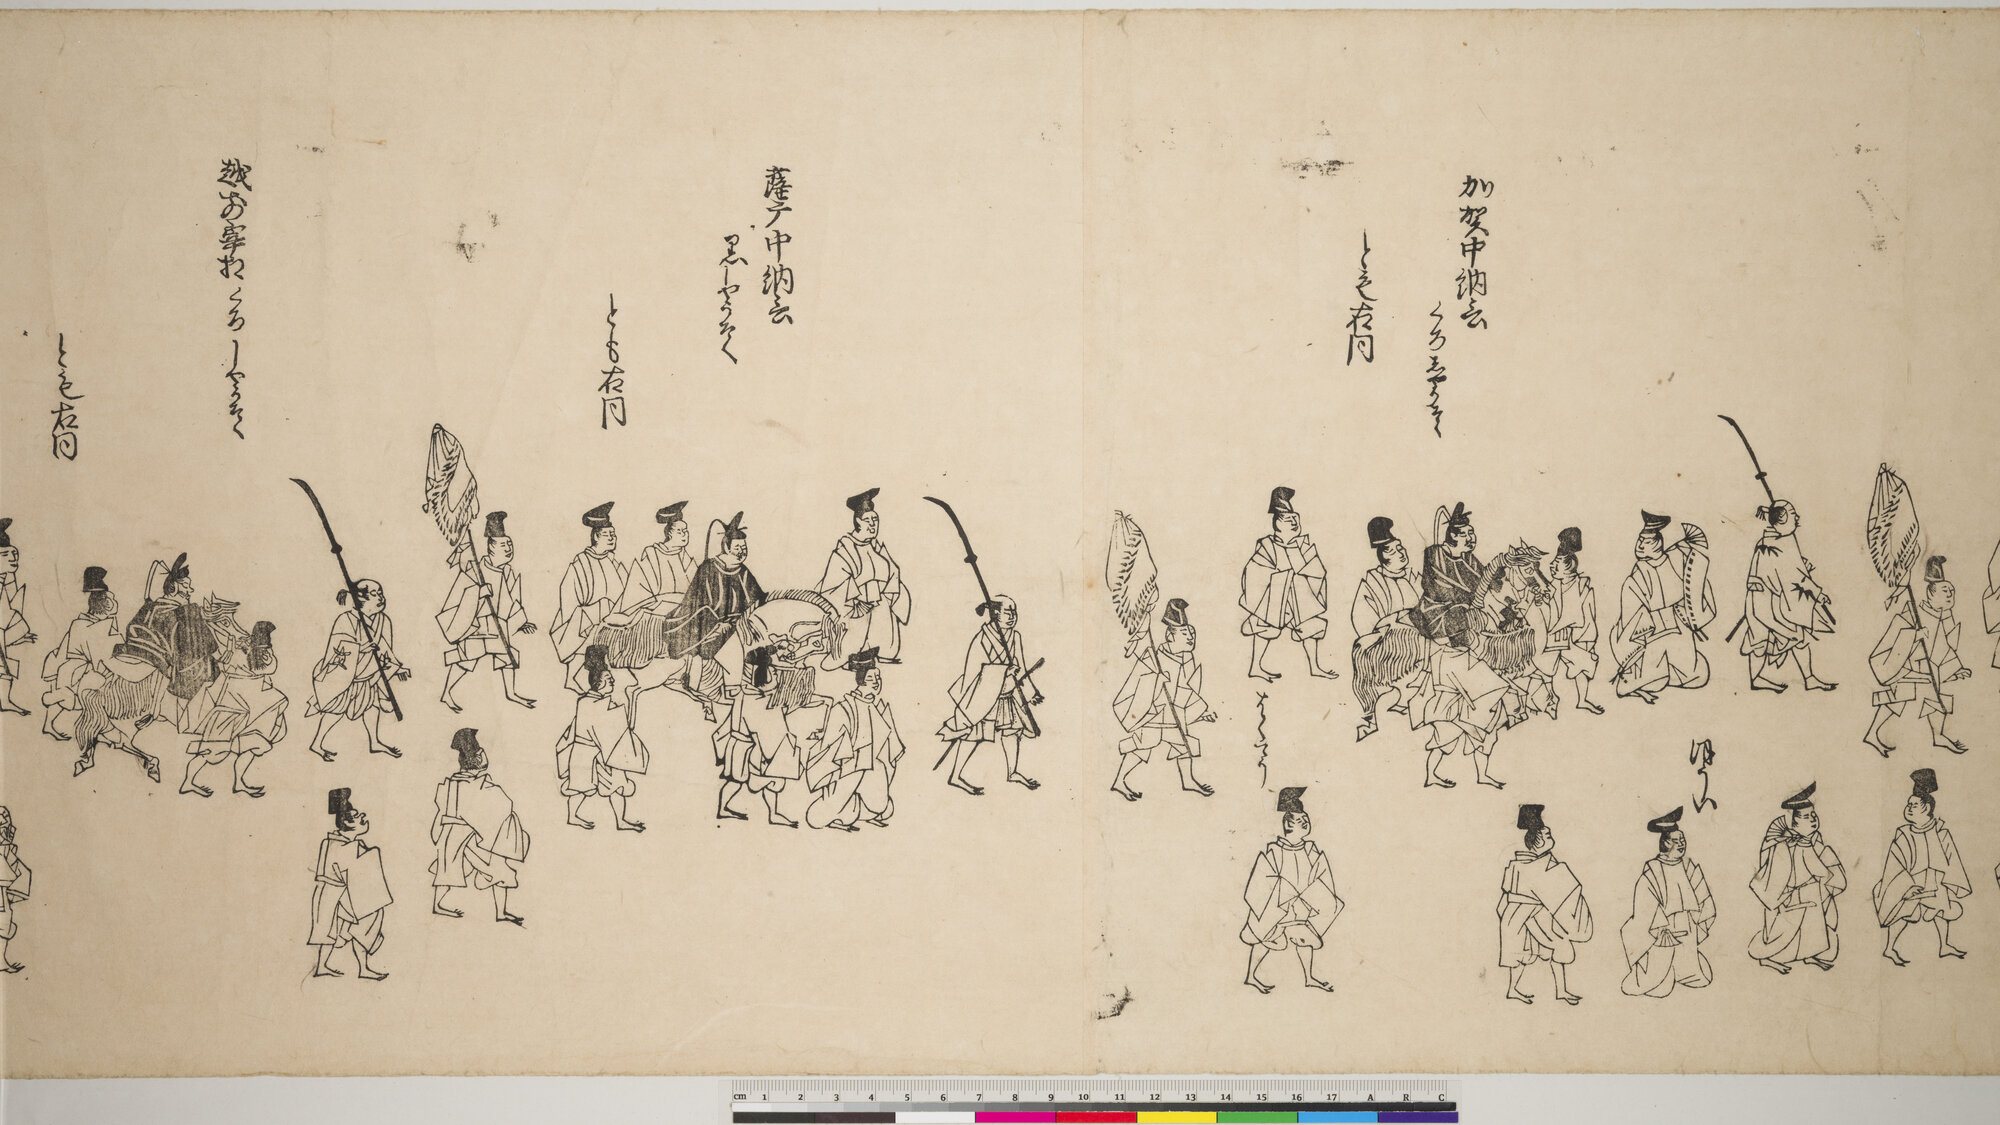 加賀中納言
くろしやうそく
とも右同
はくてう
薩广中納言
黒しやうそく
とも右同
越前宰相 くろしやうそく
とも右同
cm 1 2 3 4 5 6 7 8 9 10 11 12 13 14 15 16 17 A R C